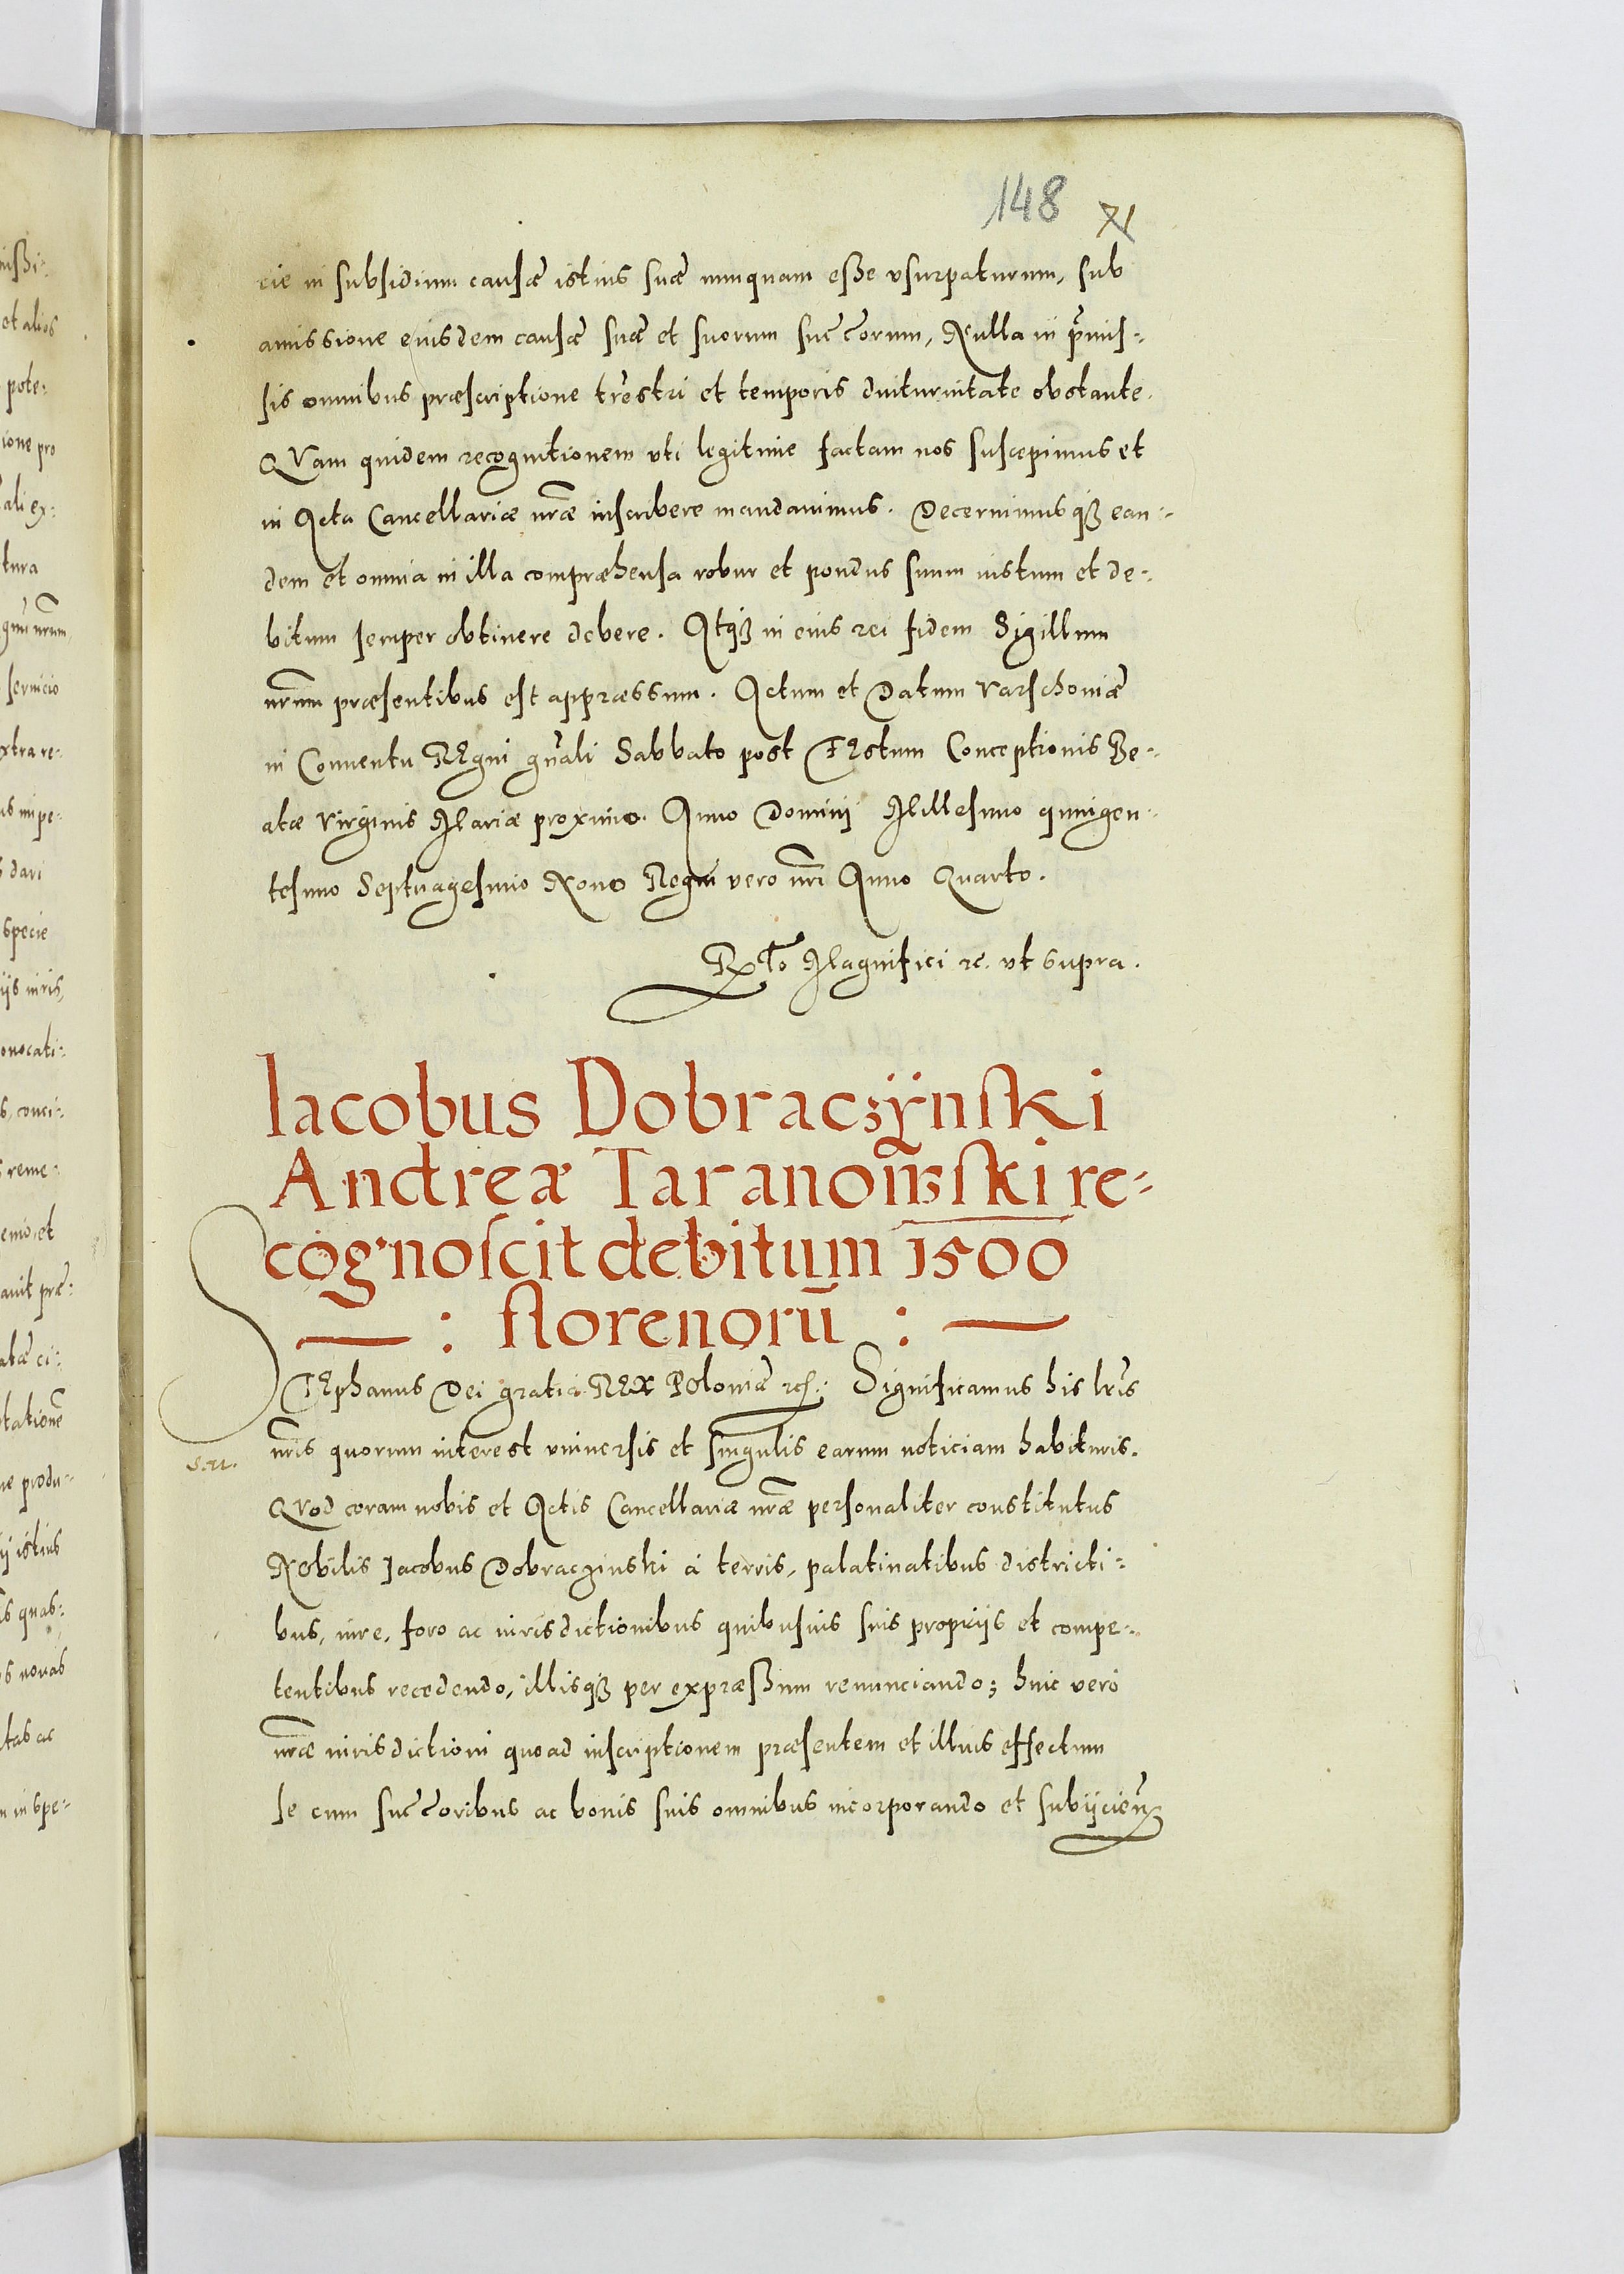 148
cie in subsidium causæ istius suæ nunquam eße vsurpaturum, sub
amissione eiusdem causæ suæ et suorum succ̃orum, Nulla in p̃mis-
sis omnibus præscriptione tr̃estri et temporis diuturnitate obstante.
QVam quidem recognitionem vti legitime factam nos suscepimus et
in Acta Cancellariæ nr̃æ inscribere mandauimus. Decernimusqꝫ ean-
dem et omnia in illa compræhensa robur et pondus suum iustum et de-
bitum semper obtinere debere. Atqꝫ in eius rei fidem Sigillum
nr̃um præsentibus est appræssum. Actum et Datum Varschouiæ
in Conuentu REgni gñali Sabbato post FEstum Conceptionis Be-
atæ Virginis Mariæ proximo. Anno Domini Millesimo quingen-
tesimo Septuagesimo Nono Regni vero nr̃i Anno Quarto.
Rt̃o Magnifici ꝛc. vt supra.
Iacobus Dobraczÿnski
Andreæ Taranowski re-
cognoscit debitum 1500
: florenorū :
STEphanus Dei gratia REX Poloniæ ꝛc̃. Significamus his lr̃is
nr̃is quorum interest vniuersis et singulis earum noticiam habituris.
QVod coram nobis et Actis Cancellariæ nr̃æ personaliter constitutus
Nobilis Jacobus Dobraczinski à terris, palatinatibus districti-
bus, iure, foro ac iurisdictionibus quibusuis suis proprijs et compe-
tentibus recedendo, illisqꝫ per expræßum renunciando; huic vero
nr̃æ iurisdictioni quoad inscriptionem præsentem et illius effectum
se cum succ̃oribus ac bonis suis omnibus incorporando et subijcieñ